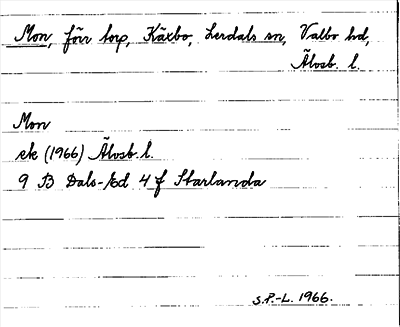 Mon, förr torp, Käxbo, Lerdals sn, Valbo hd,
Älvsb. l.
Mon
ek (1966) Älvsb. l.
9 B Dals-Ed 4 f Starlanda
S.P.-L. 1966.